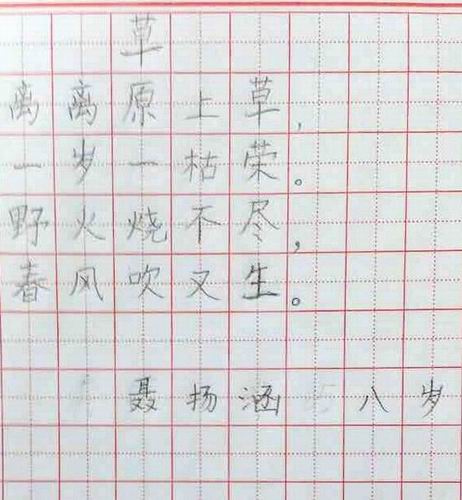 草
离离原上草，
一岁一枯荣。
野火烧不尽，
春风吹又生。
聂扬涵 八岁